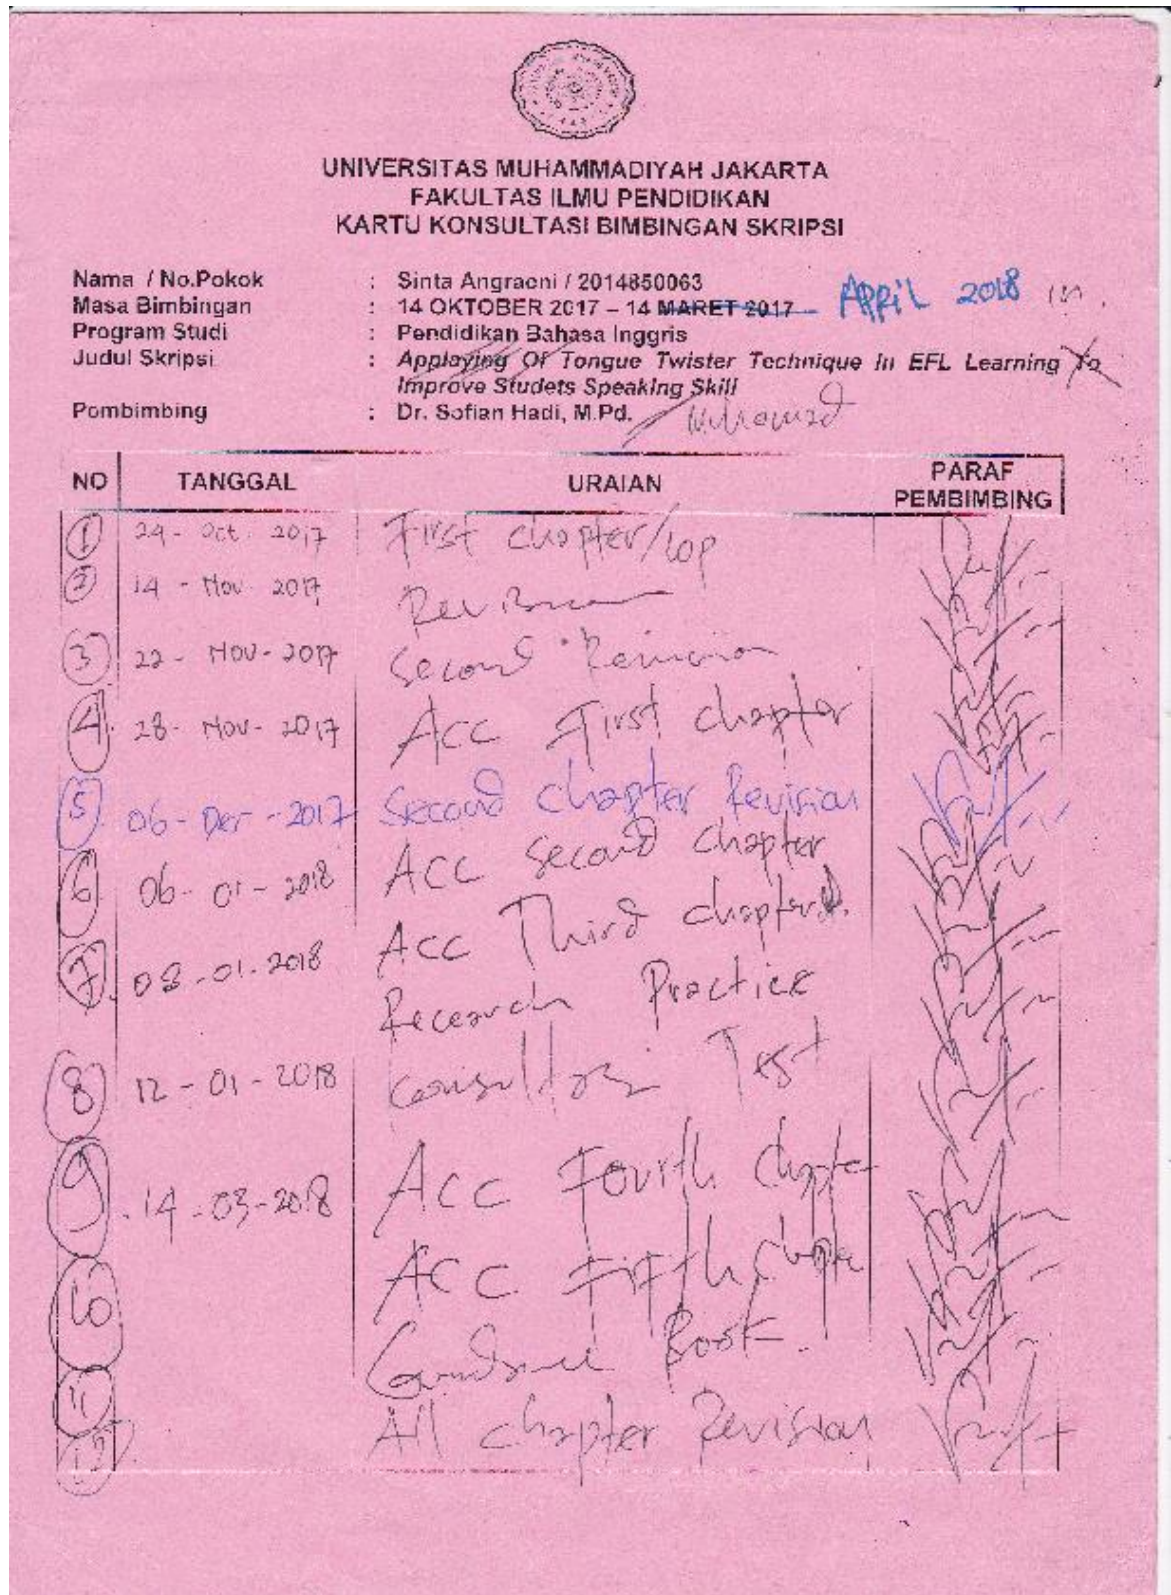 UNIVERSITAS MUHAMMADIYAH JAKARTA
FAKULTAS ILMU PENDIDIKAN
KARTU KONSULTASI BIMBINGAN SKRIPSI
Nama / No.Pokok : Sinta Angraeni / 2014850063
Masa Bimbingan : 14 OKTOBER 2017 – 14 MARET 2017 APRIL 2018
Program Studi : Pendidikan Bahasa Inggris
Judul Skripsi : Applaying Of Tongue Twister Technique In EFL Learning To
Improve Studets Speaking Skill
Pembimbing : Dr. Sofian Hadi, M.Pd. Muhamad
NO TANGGAL URAIAN PARAF
PEMBIMBING
1 24 - Oct. 2017 First chapter/
2 14 - Nov. 2017 Revision
3 22 - Nov - 2017 Second Revision
4. 28 - Nov - 2017 Acc First chapter
5. 06 - Des - 2017 Second chapter Revision
6 06 - 01 - 2018 Acc second chapter
7. 08 - 01 - 2018 Acc Third chapter
Research Practice
8 12 - 01 - 2018 Test
9. 14 - 03 - 2018 Acc Fourth chapter
10 Acc Fifth chapter
Book.
11
12. All chapter Revision